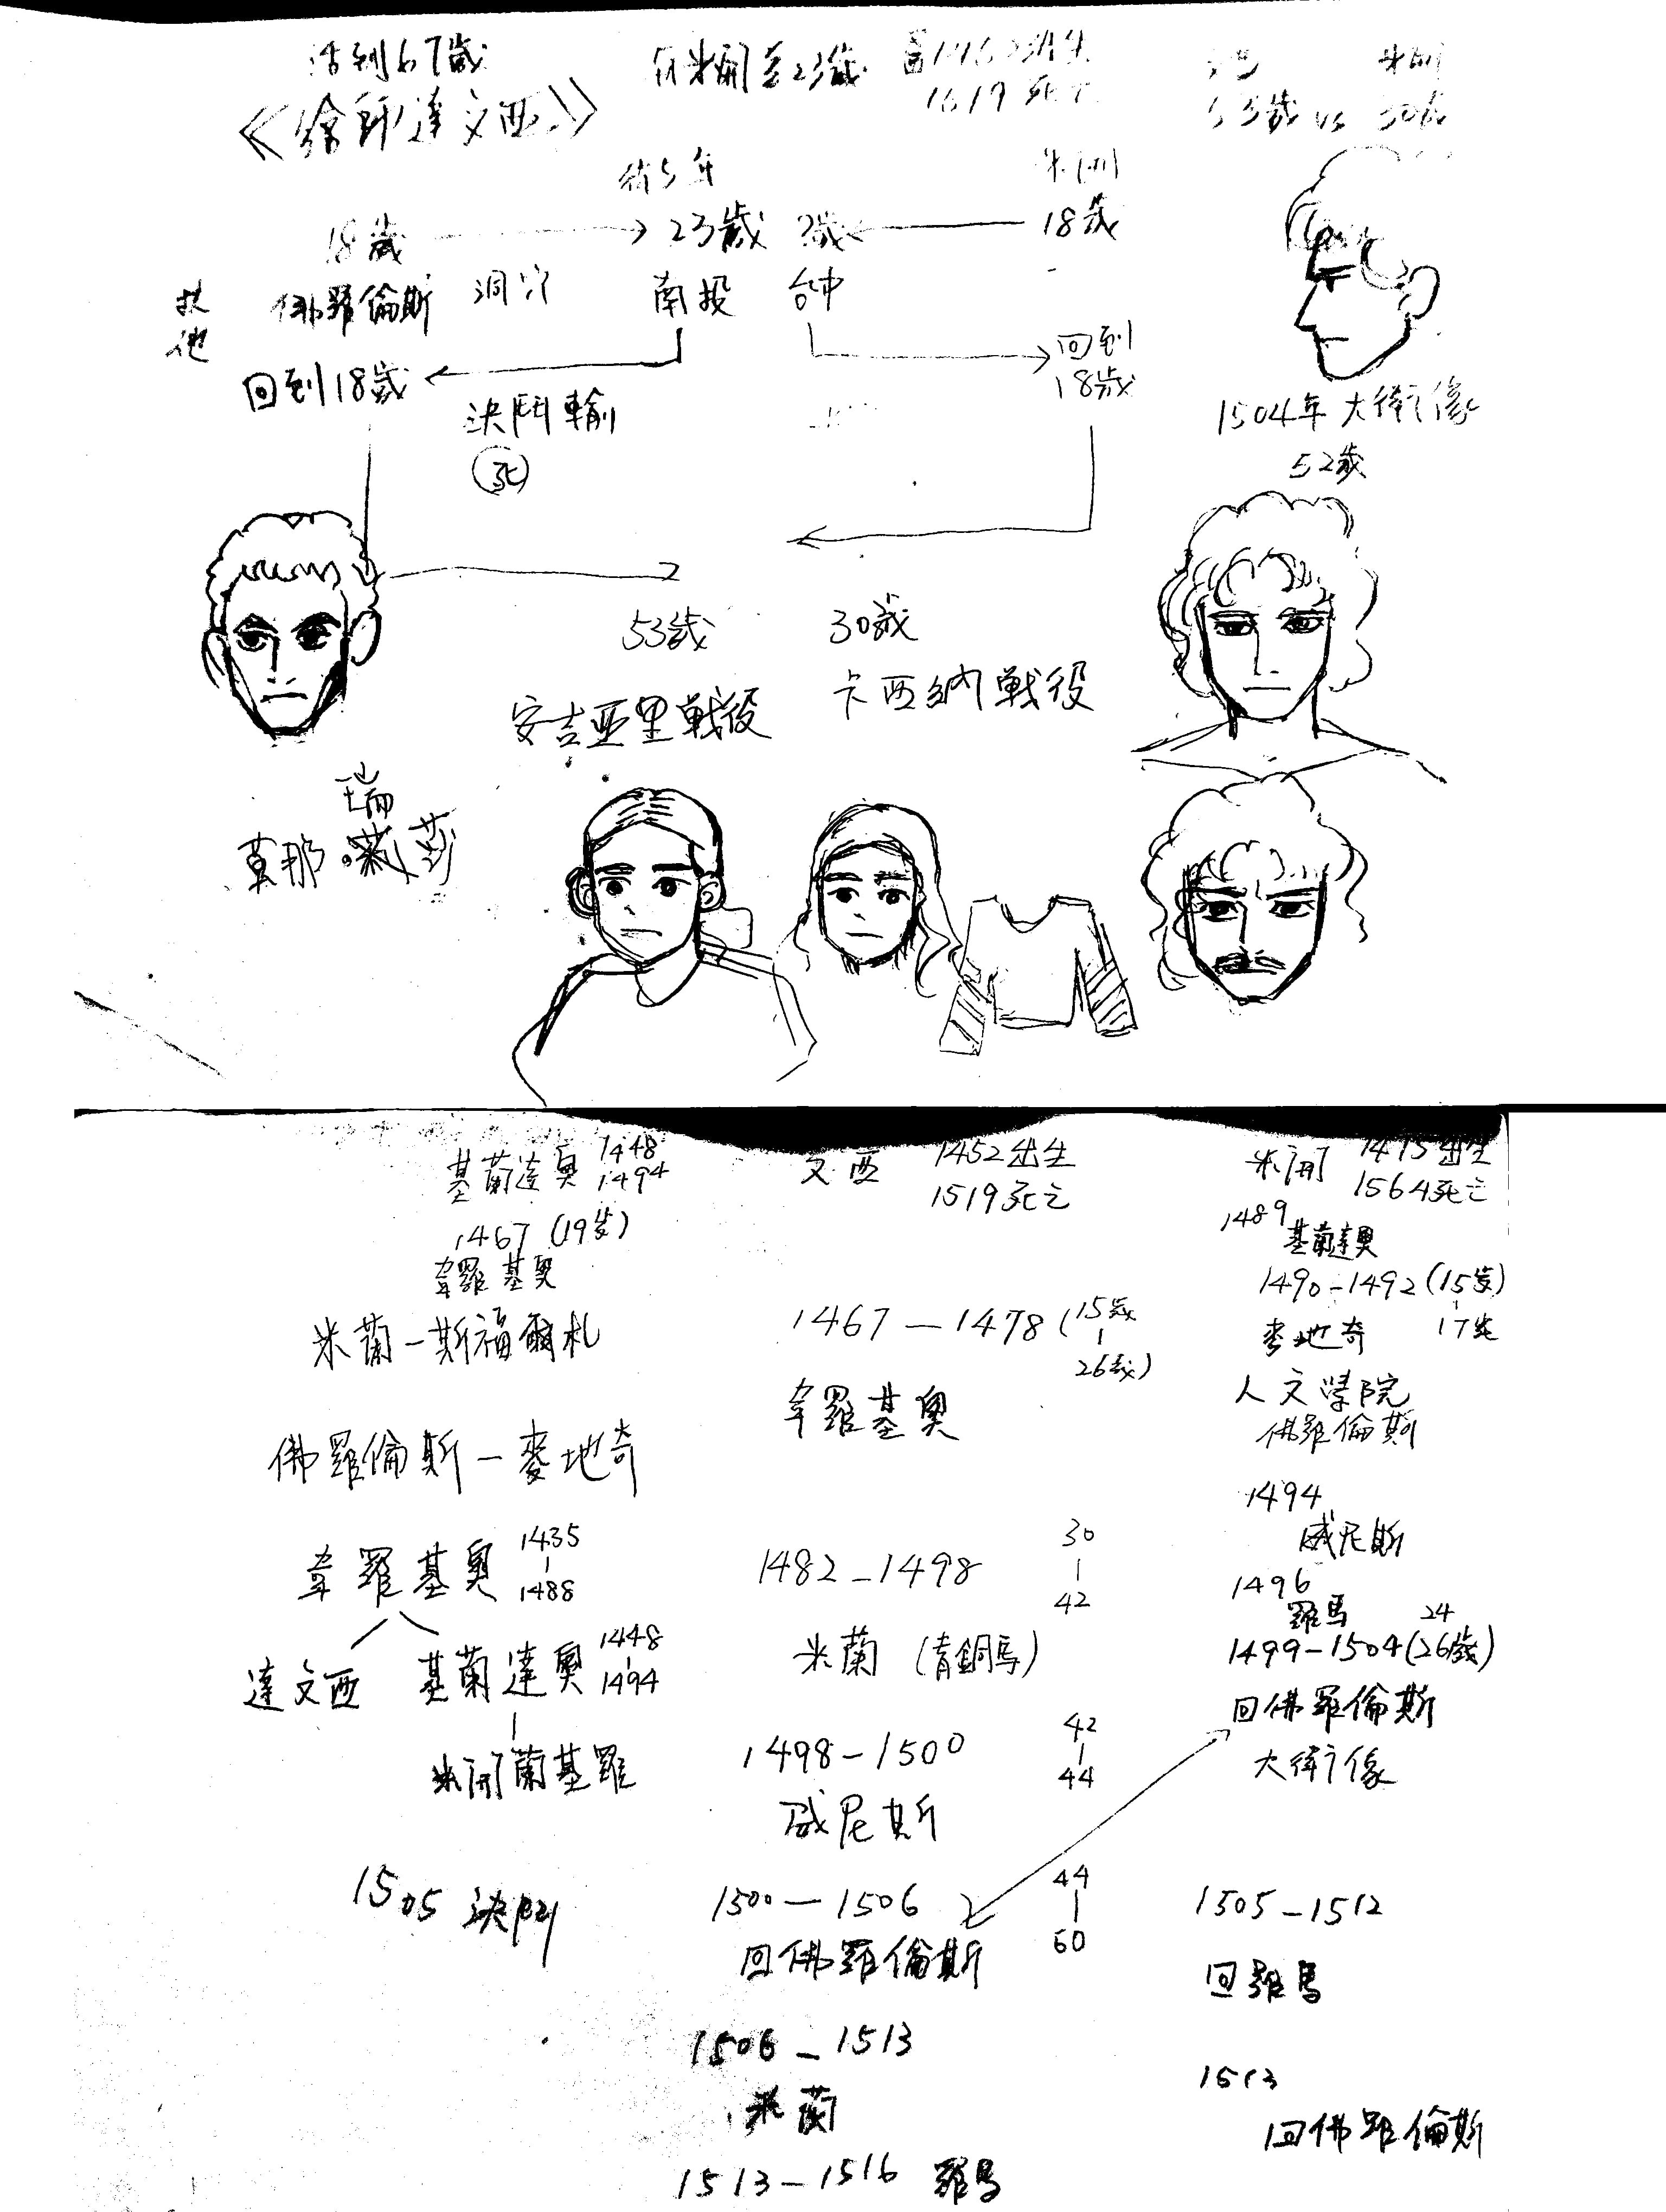 活到67歲
《繪師達文西》
1519死亡
53歲 vs 30歲
米開
18歲
23歲
?歲
18歲
佛羅倫斯
洞穴
南投
台中
其他
回到18歲
回到
18歲
決鬥輸
死
1504年大衛像
52歲
53歲
30歲
安吉亞里戰役
卡西納戰役
瑞
莫那・莎
基蘭達奧
1448
1494
1467 (19歲)
韋羅基奧
米蘭-斯福爾札
佛羅倫斯-麥地奇
韋羅基奧
1435
1488
達文西
基蘭達奧
1448
1494
米開蘭基羅
1505 決鬥
文西
1452出生
1519死亡
1467-1478 (15歲
26歲)
韋羅基奧
1482-1498
30
42
米蘭 (青銅馬)
1498-1500
42
44
威尼斯
1500-1506
44
60
回佛羅倫斯
1506-1513
米蘭
1513-1516 羅馬
米開
1475出生
1564死亡
1489
基蘭達奧
1490-1492 (15歲)
17歲
麥地奇
人文學院
佛羅倫斯
1494
威尼斯
1496
羅馬
24
1499-1504 (26歲)
回佛羅倫斯
大衛像
1505-1512
回羅馬
1513
回佛羅倫斯